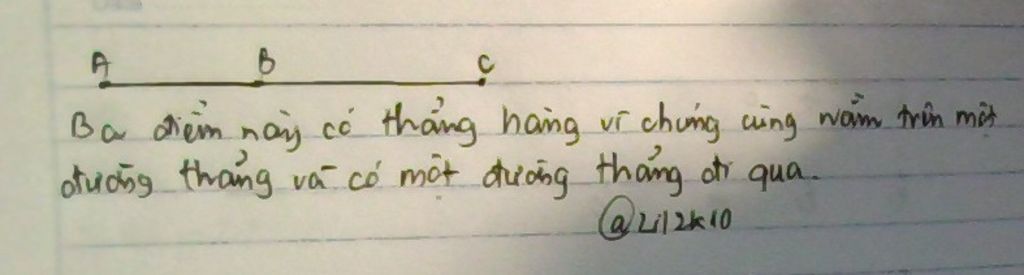 A B C
Ba điểm này có thẳng hàng vì chúng cùng nằm trên một
đường thẳng và có một đường thẳng đi qua.
@Lil2k10